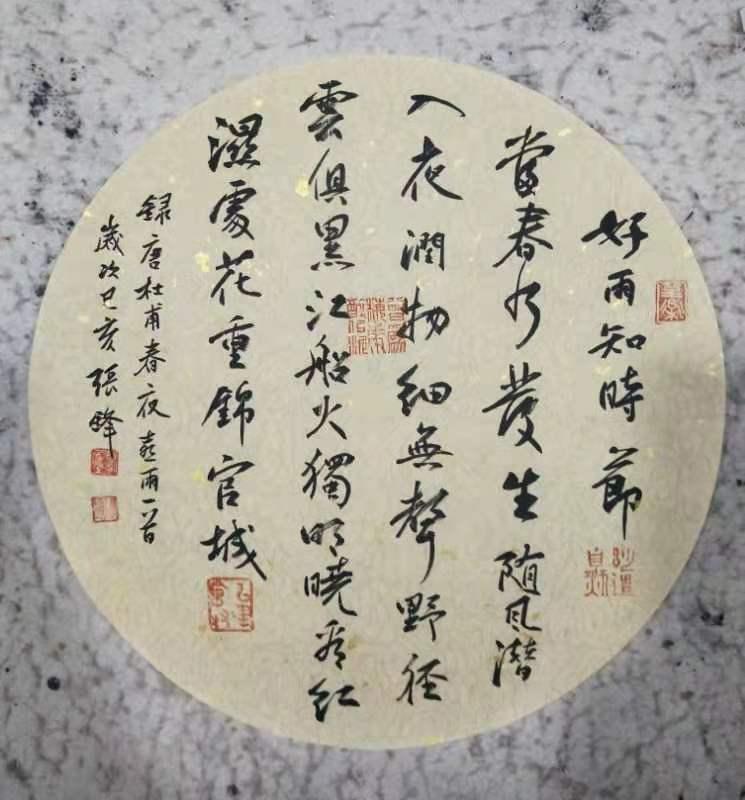 好雨知時節
當春乃發生随风潛
入夜潤物細無聲野径
雲俱黑江船火獨明曉看红
濕處花重錦官城
録唐杜甫春夜喜雨一首
歲次己亥張鋒